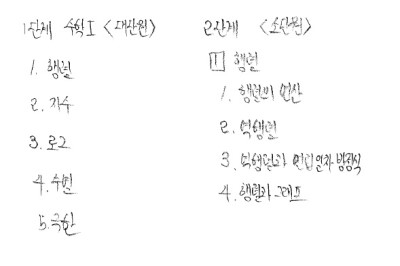 1단계 수학I <대단원>
1. 행렬
2. 지수
3. 로그
4. 수열
5. 극한
2단계 <소단원>
1 행렬
1. 행렬의 연산
2. 역행렬
3. 역행렬과 연립 일차 방정식
4. 행렬과 그래프